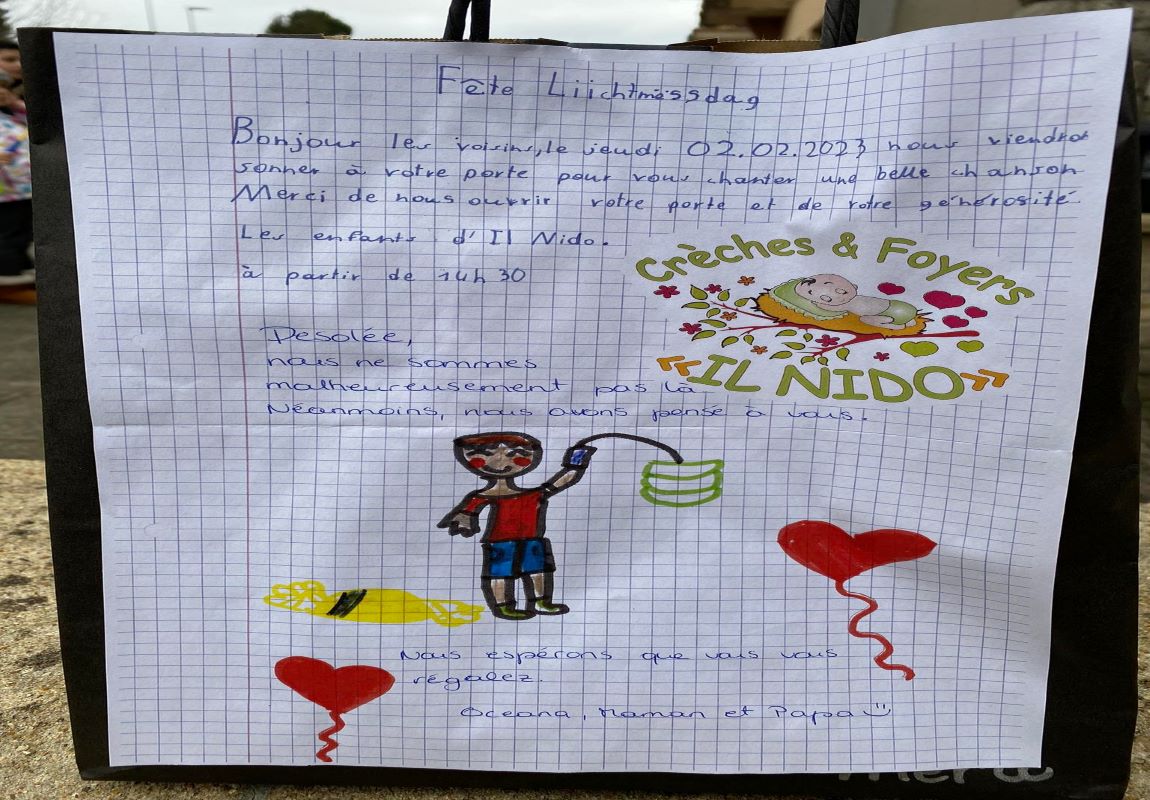 Fête Liichtmëssdag
Bonjour les voisins, le jeudi 02.02.2023 nous viendrons
sonner à votre porte pour vous chanter une belle chanson
Merci de nous ouvrir votre porte et de votre générosité.
Les enfants d'Il Nido.
à partir de 14h30
Crèches & Foyers
«IL NIDO»
Desolée,
nous ne sommes
malheureusement pas là.
Néanmoins, nous avons pensé à vous.
Nous espérons que vous vous
régalez.
Oceana, Maman et Papa